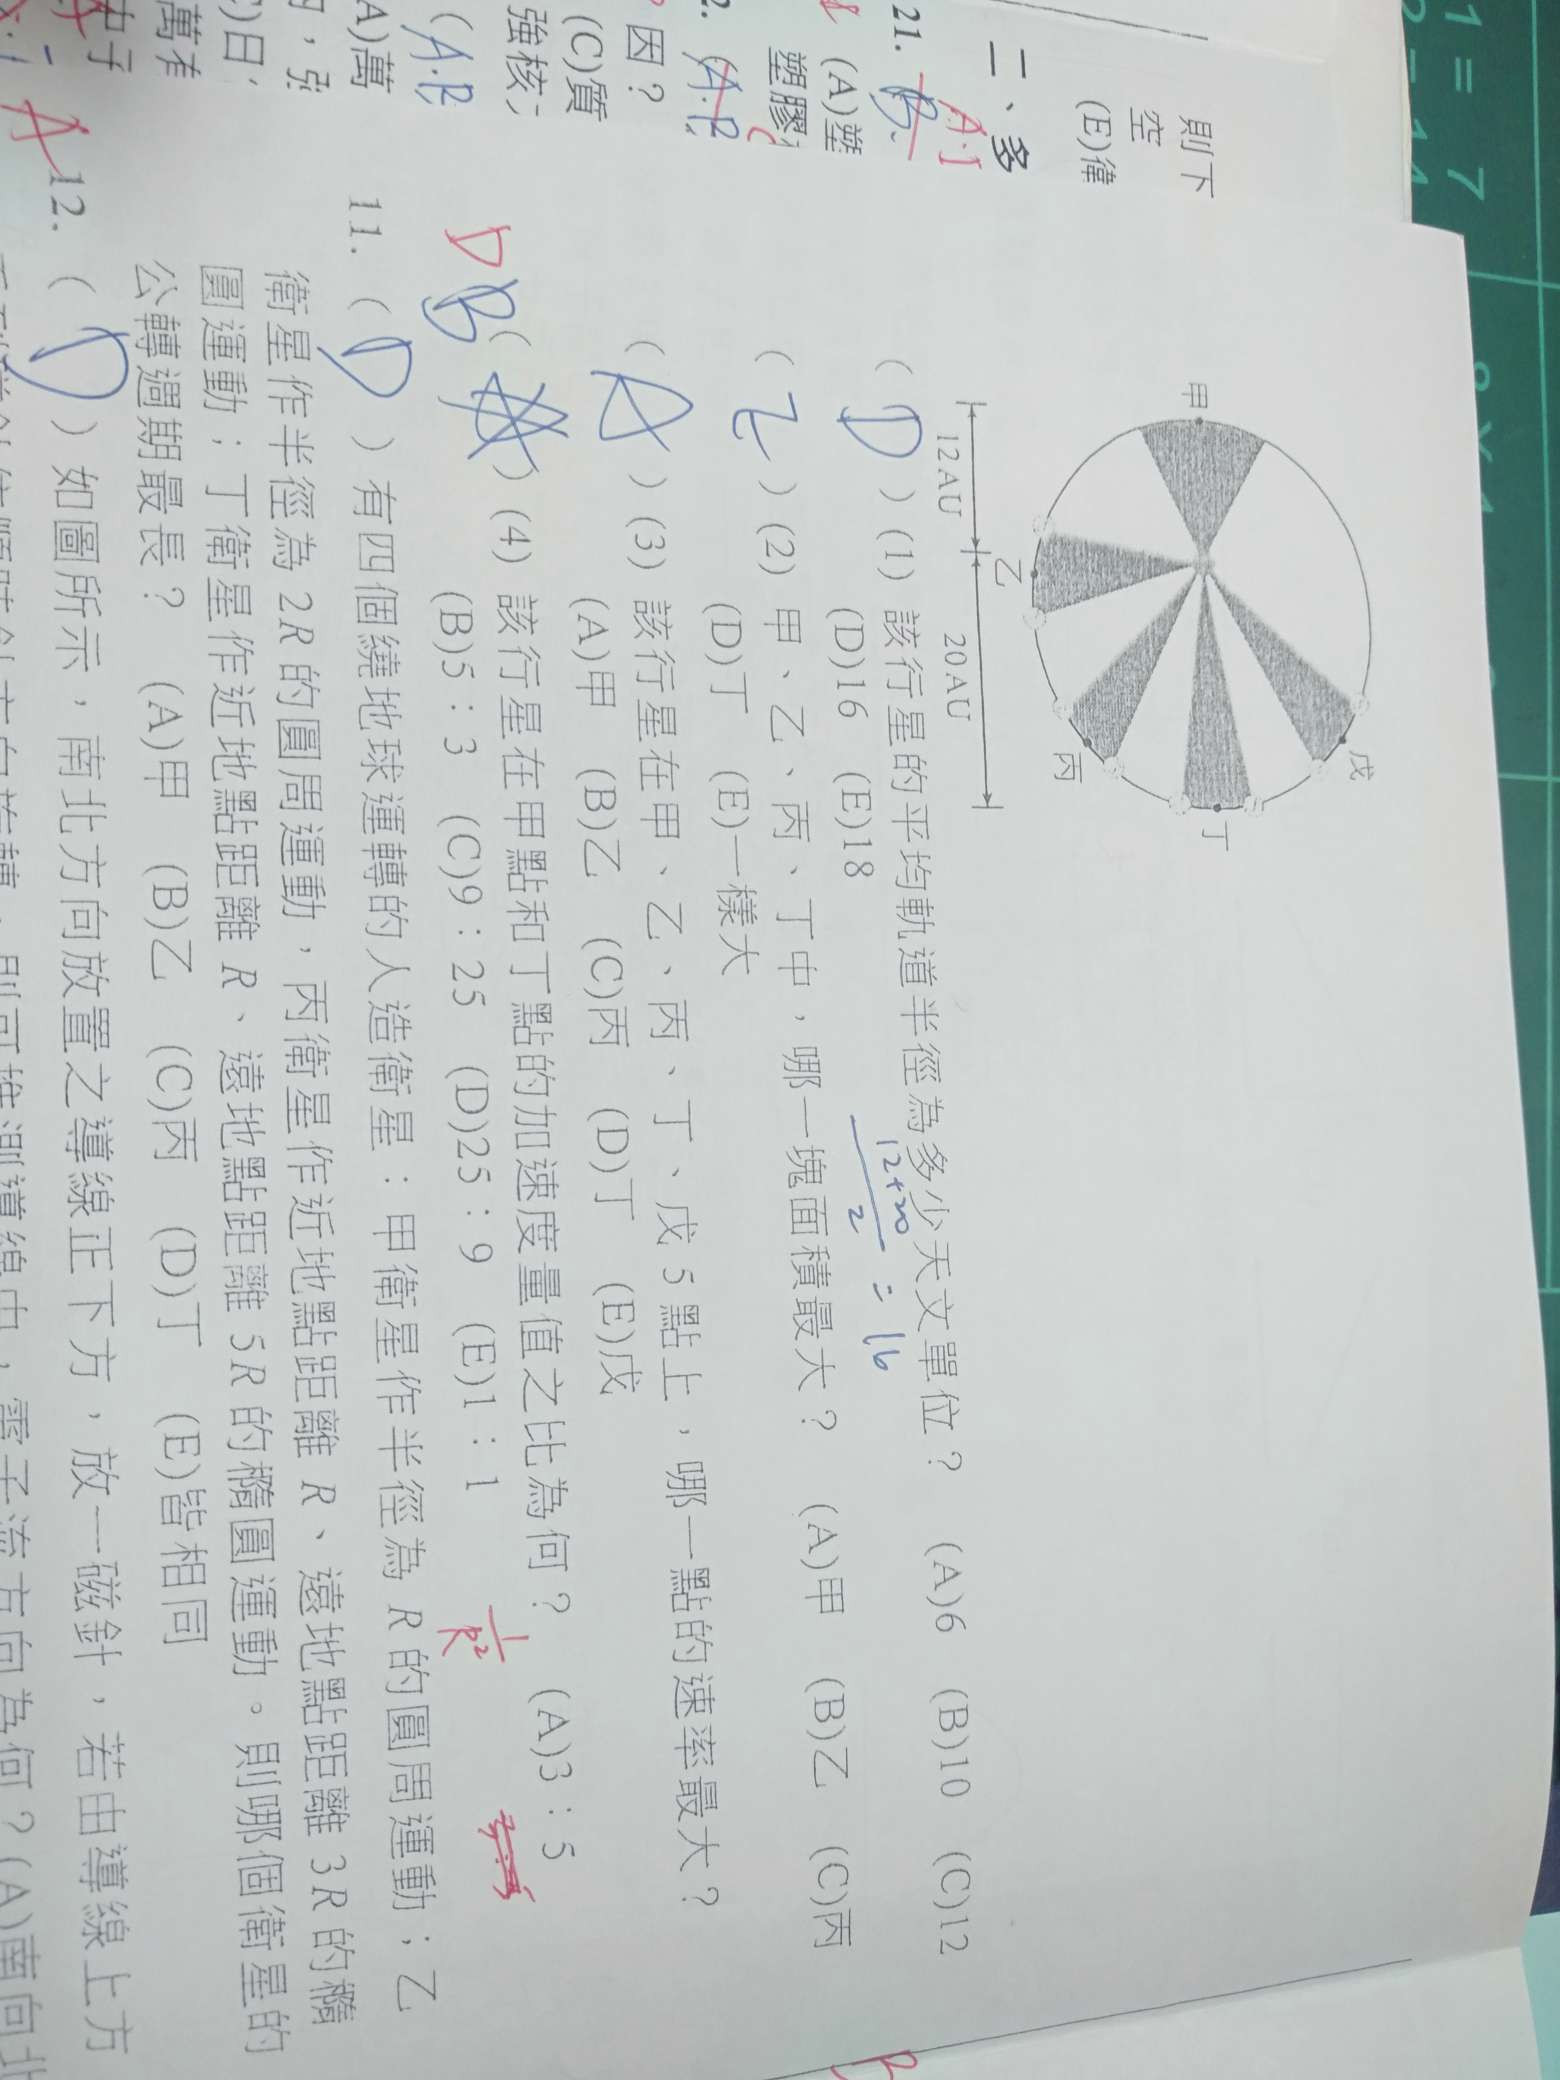 則下
空
(E)偉
二、多
21.
(A)塑
塑膠
2.
因？
(C)質
強核、
(A·B
A)萬
，強
C)日、
萬有
甲
乙
丙
丁
戊
12AU
20AU
( D ) (1) 該行星的平均軌道半徑為多少天文單位？ (A)6 (B)10 (C)12
(D)16 (E)18
12+20
2
= 16
( E ) (2) 甲、乙、丙、丁中，哪一塊面積最大？ (A)甲 (B)乙 (C)丙
(D)丁 (E)一樣大
( A ) (3) 該行星在甲、乙、丙、丁、戊 5 點上，哪一點的速率最大？
(A)甲 (B)乙 (C)丙 (D)丁 (E)戊
D B ( ) (4) 該行星在甲點和丁點的加速度量值之比為何？ (A)3：5
(B)5：3 (C)9：25 (D)25：9 (E)1：1
1
R²
11. ( D ) 有四個繞地球運轉的人造衛星：甲衛星作半徑為 R 的圓周運動；乙
衛星作半徑為 2R 的圓周運動，丙衛星作近地點距離 R、遠地點距離 3R 的橢
圓運動；丁衛星作近地點距離 R、遠地點距離 5R 的橢圓運動。則哪個衛星的
公轉週期最長？ (A)甲 (B)乙 (C)丙 (D)丁 (E)皆相同
12. ( D ) 如圖所示，南北方向放置之導線正下方，放一磁針，若由導線上方
，則可推測導線中，電子流方向為何？(A)南向北